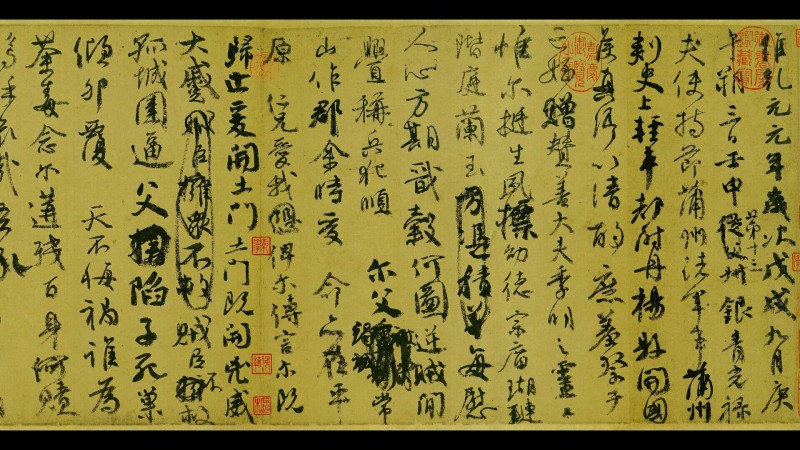 維乾元元年歲次戊戌九月庚
午朔三日壬申第十三從父銀青光祿
夫使持節蒲州諸軍事蒲州
刺史上輕車都尉丹楊縣開國
侯真卿以清酌庶羞祭于
亡姪贈贊善大夫季明之靈曰
惟爾挺生夙標幼德宗廟瑚璉
階庭蘭玉方憑積善每慰
人心方期戩穀何圖逆賊閒
釁稱兵犯順爾父竭誠常
山作郡余時受命亦在平
原仁兄愛我俾爾傳言爾既
歸止爰開土門土門既開兇威
大蹙賊臣擁眾不救賊臣不救
孤城圍逼父陷子死巢
傾卵覆天不悔禍誰為
荼毒念爾遘殘百身何贖
嗚乎哀哉吾承